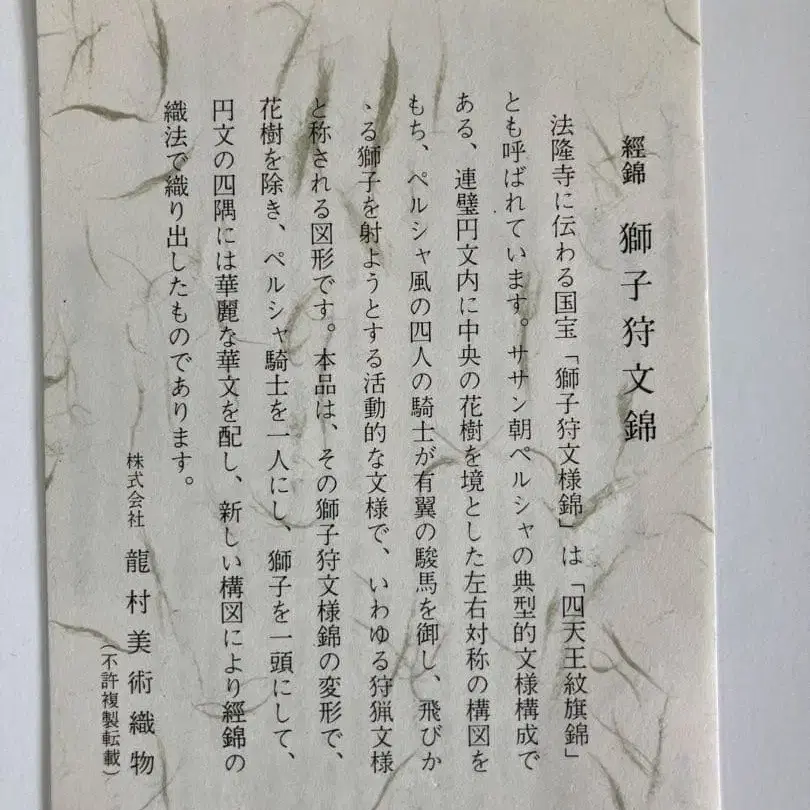 經錦 獅子狩文錦
法隆寺に伝わる国宝「獅子狩文様錦」は「四天王紋旗錦」
とも呼ばれています。ササン朝ペルシャの典型的文様構成で
ある、連璧円文内に中央の花樹を境とした左右対称の構図を
もち、ペルシャ風の四人の騎士が有翼の駿馬を御し、飛びか
ゝる獅子を射ようとする活動的な文様で、いわゆる狩猟文様
と称される図形です。本品は、その獅子狩文様錦の変形で、
花樹を除き、ペルシャ騎士を一人にし、獅子を一頭にして、
円文の四隅には華麗な華文を配し、新しい構図により經錦の
織法で織り出したものであります。
株式会社 龍村美術織物
（不許複製転載）